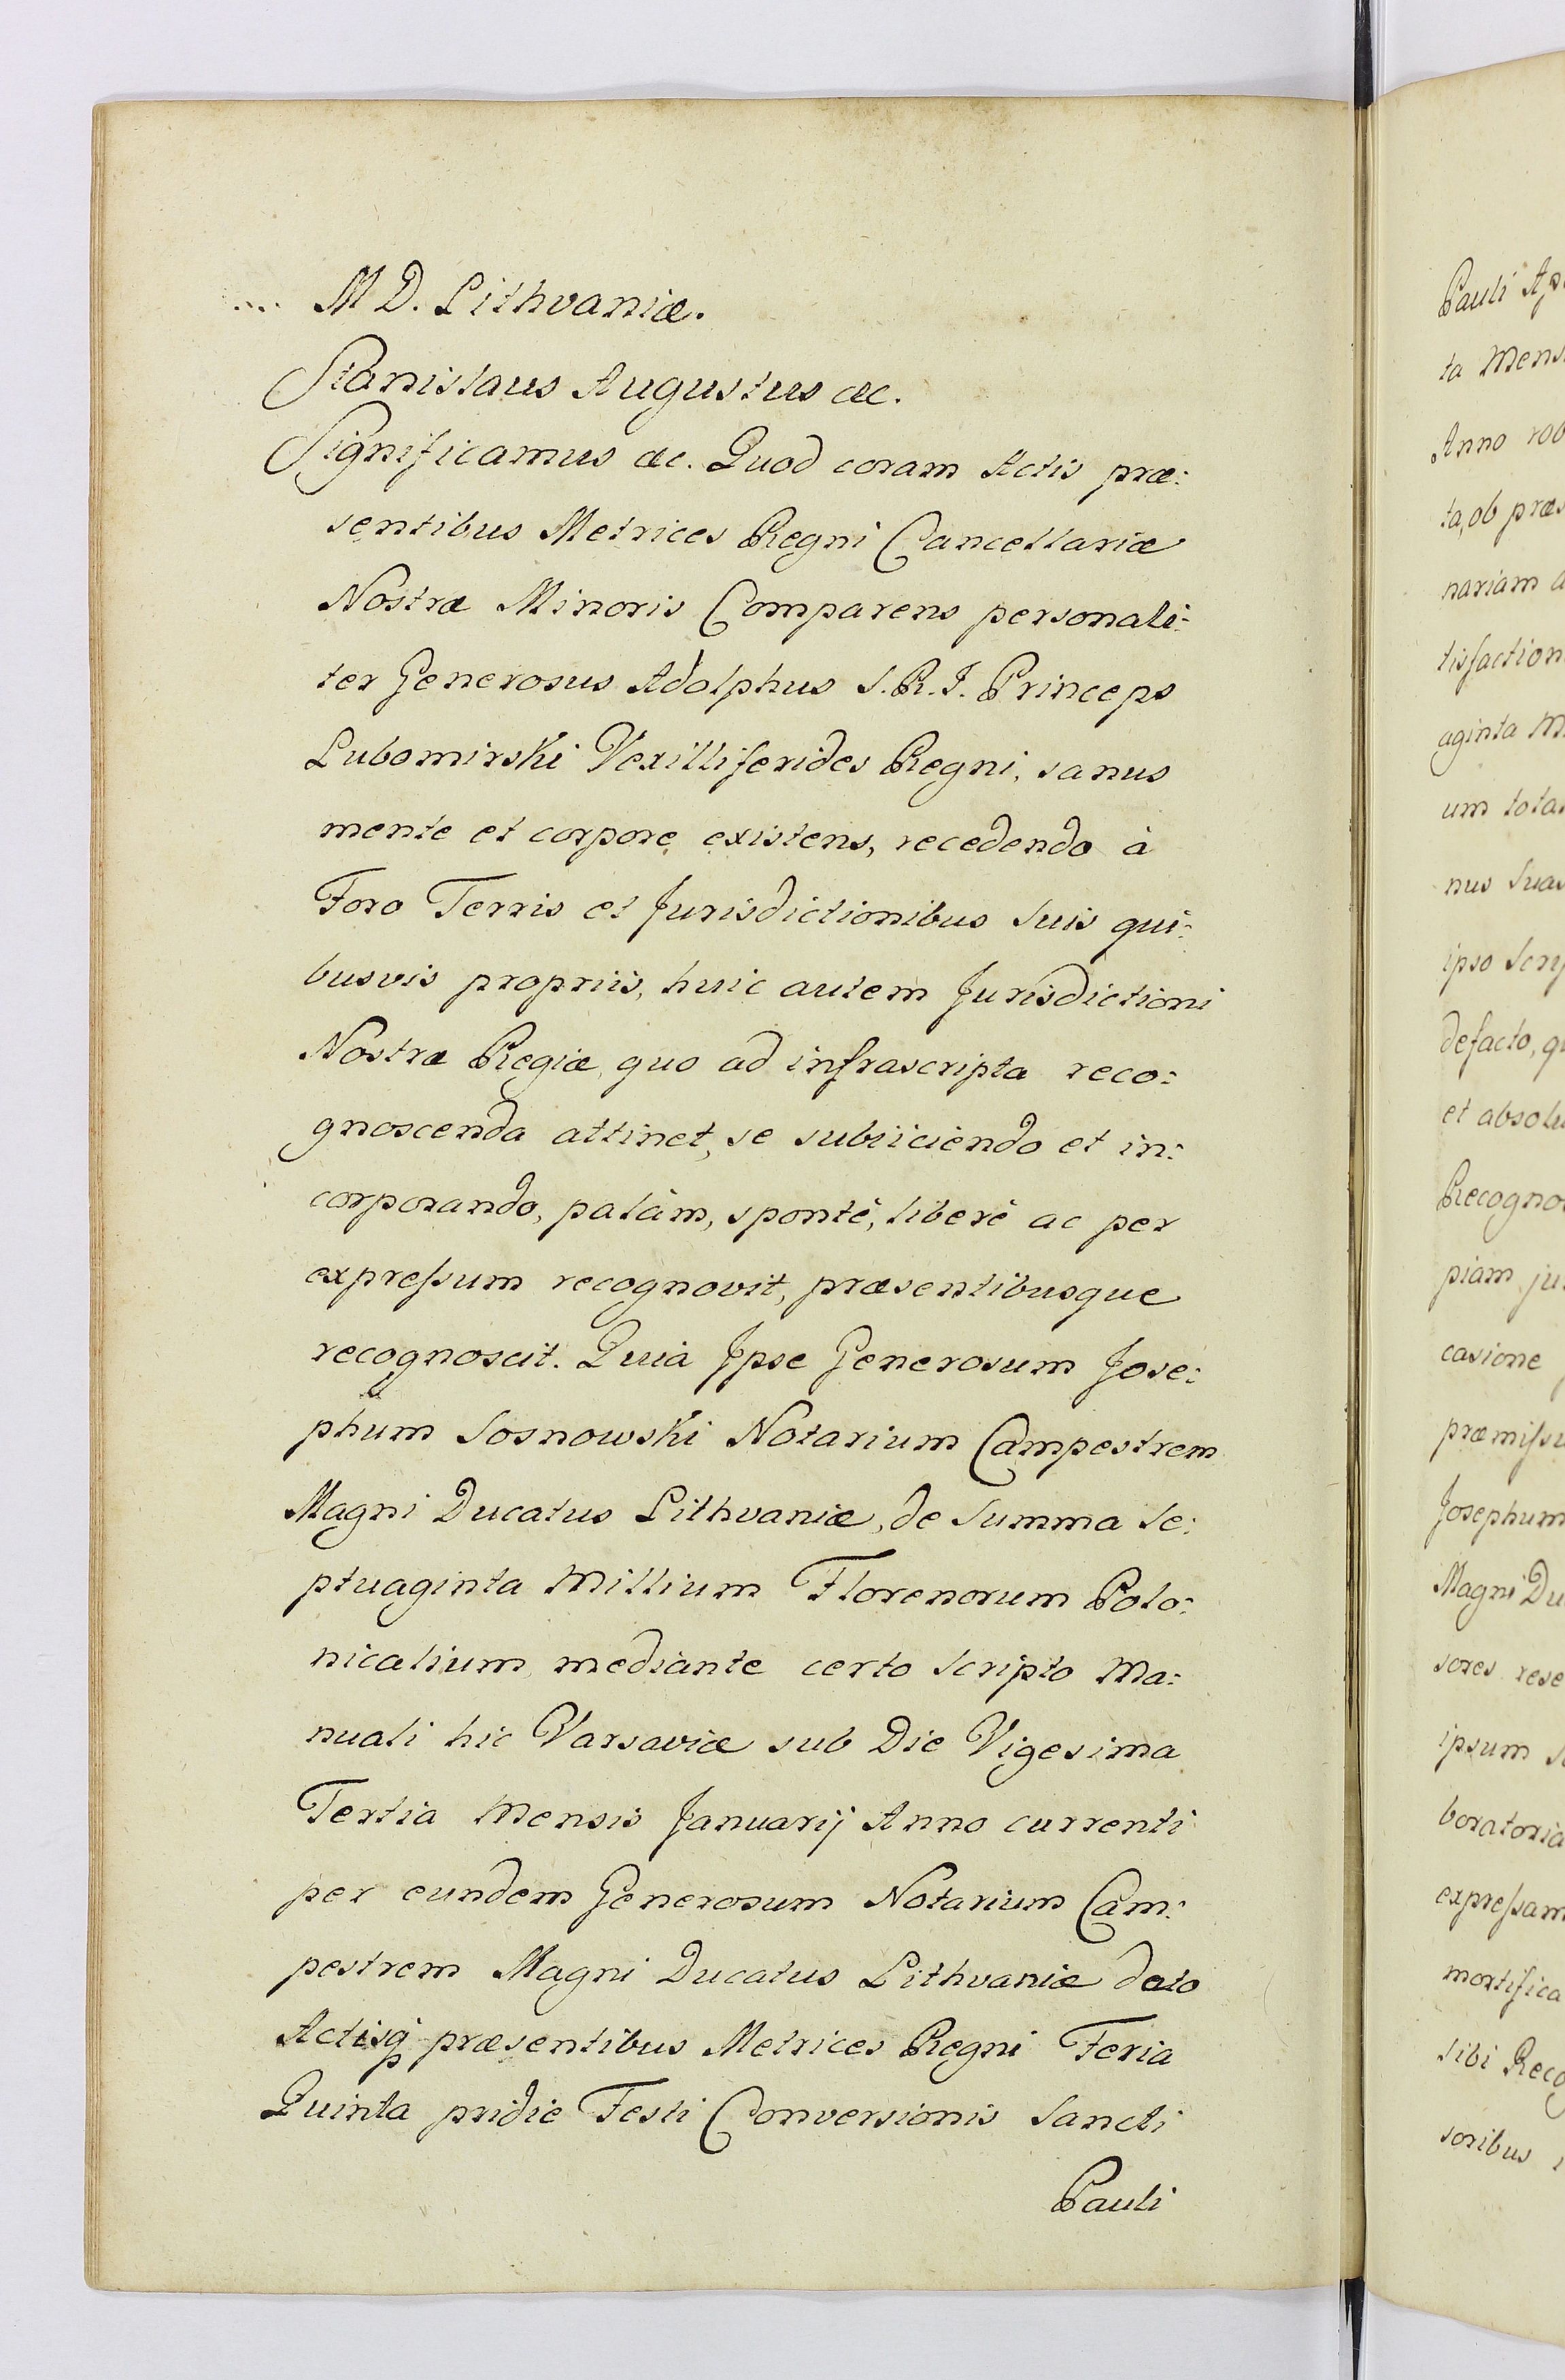 ... M D. Lithvaniæ.
Stanislaus Augustus &c.
Significamus &c. Quod coram Actis præ:
sentibus Metrices Regni Cancellariæ
Nostræ Minoris Comparens personali:
ter Generosus Adolphus S. R. I. Princeps
Lubomirski Vexilliferides Regni, sanus
mente et corpore existens, recedendo à
Foro Terris et Jurisdictionibus suis qui:
busvis propriis, huic autem Jurisdictioni
Nostræ Regiæ, quo ad infrascripta reco:
gnoscenda attinet, se subiiciendo et in:
corporando, palàm, spontè, liberè ac per
expreſsum recognovit, præsentibusque
recognoscit. Quia Ipse Generosum Jose:
phum Sosnowski Notarium Campestrem
Magni Ducatus Lithvaniæ, de Summa Se:
ptuaginta Millium Florenorum Polo:
nicalium, mediante certo Scripto Ma:
nuali hic Varsaviæ sub Die Vigesima
Tertia Mensis Januarij Anno currenti
per eundem Generosum Notarium Cam:
pestrem Magni Ducatus Lithvaniæ dato
Actisq̃ præsentibus Metrices Regni Feria
Quinta pridie Festi Conversionis Sancti
Pauli
Pauli
ta Mens
Anno rob
ta, ob præs
nariam
tisfaction
aginta M
um tota
nus Sua
ipso Scri
defacto, q
et absolu
Recogno
piam ju
casione
præmiſsu
Josephum
Magni Du
sores rese
ipsum
boratoria
expreſsam
mortifica
sibi Reco
soribus